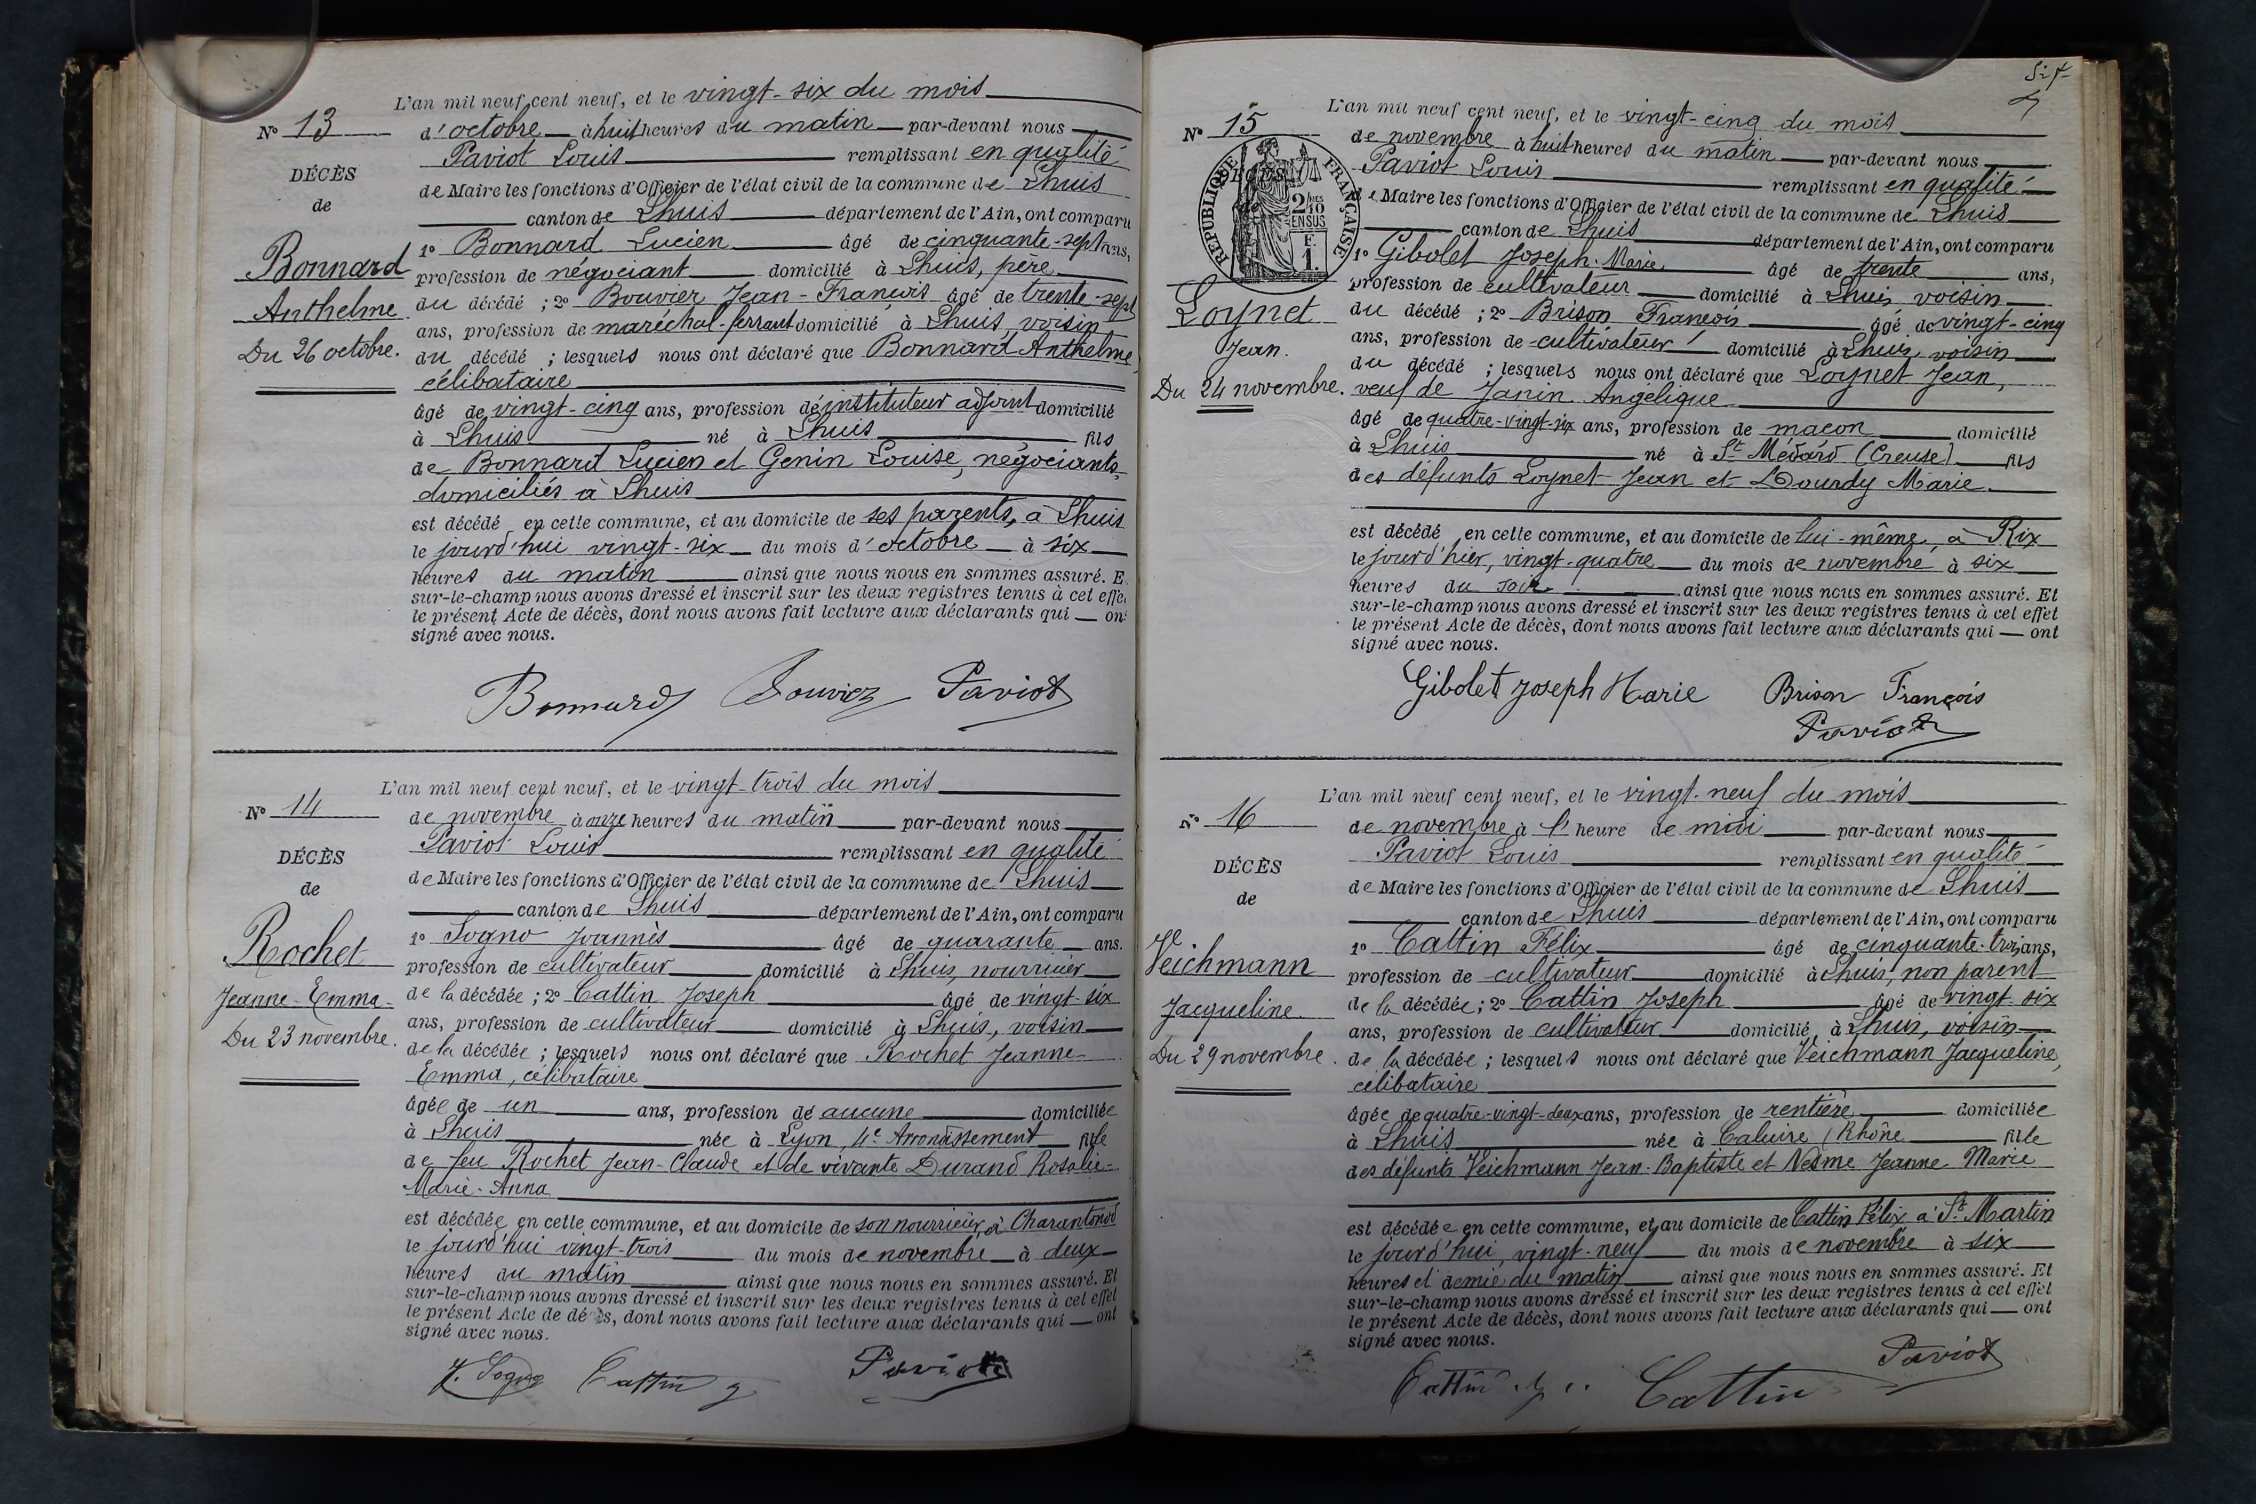 L'an mil neuf cent neuf, et le vingt-six du mois
N° 13
d'octobre à huit heures du matin par-devant nous
Paviot Louis remplissant en qualité
DÉCÈS
de Maire les fonctions d'Officier de l'état civil de la commune de Lhuis
de
canton de Lhuis département de l'Ain, ont comparu
1° Bonnard Lucien âgé de cinquante-sept ans,
Bonnard
profession de négociant domicilié à Lhuis, père
Anthelme
du décédé ; 2° Bouvier Jean-François âgé de trente-sept
ans, profession de maréchal-ferrant domicilié à Lhuis, voisin
Du 26 octobre.
du décédé ; lesquels nous ont déclaré que Bonnard Anthelme,
célibataire
âgé de vingt-cinq ans, profession d'instituteur adjoint domicilié
à Lhuis né à Lhuis fils
de Bonnard Lucien et Genin Louise, négociants,
domiciliés à Lhuis
est décédé en cette commune, et au domicile de ses parents, à Lhuis
le jourd'hui vingt-six du mois d'octobre à six
heures du matin ainsi que nous nous en sommes assuré. E
sur-le-champ nous avons dressé et inscrit sur les deux registres tenus à cet effe
le présent Acte de décès, dont nous avons fait lecture aux déclarants qui ont
signé avec nous.
Bonnard Bouvier Paviot
L'an mil neuf cent neuf, et le vingt-trois du mois
N° 14
de novembre à onze heures du matin par-devant nous
Paviot Louis remplissant en qualité
DÉCÈS
de Maire les fonctions d'Officier de l'état civil de la commune de Lhuis
de
canton de Lhuis département de l'Ain, ont comparu
1° Sogno Joannès âgé de quarante ans.
Rochet
profession de cultivateur domicilié à Lhuis, nourricier
Jeanne-Emma
de la décédée ; 2° Cattin Joseph âgé de vingt-six
ans, profession de cultivateur domicilié à Lhuis, voisin
Du 23 novembre.
de la décédée ; lesquels nous ont déclaré que Rochet Jeanne-
Emma, célibataire
âgée de un ans, profession de aucune domiciliée
à Lhuis née à Lyon, 4e Arrondissement fille
de feu Rochet Jean-Claude et de vivante Durand Rosalie-
Marie-Anna
est décédée en cette commune, et au domicile de son nourricier, à Charantonod
le jourd'hui vingt-trois du mois de novembre à deux
heures du matin ainsi que nous nous en sommes assuré. Et
sur-le-champ nous avons dressé et inscrit sur les deux registres tenus à cet effet
le présent Acte de décès, dont nous avons fait lecture aux déclarants qui ont
signé avec nous.
J. Sogno Cattin J Paviot
Sept
7
L'an mil neuf cent neuf, et le vingt-cinq du mois
N° 15
de novembre à huit heures du matin par-devant nous
Paviot Louis remplissant en qualité
RÉPUBLIQUE FRANÇAISE
2/10 EN SUS
F. 1.
de Maire les fonctions d'Officier de l'état civil de la commune de Lhuis
canton de Lhuis département de l'Ain, ont comparu
1° Gibolet Joseph-Marie âgé de trente ans,
profession de cultivateur domicilié à Lhuis voisin
Loynet
du décédé ; 2° Brison François âgé de vingt-cinq
Jean.
ans, profession de cultivateur domicilié à Lhuis, voisin
du décédé ; lesquels nous ont déclaré que Loynet Jean,
Du 24 novembre.
veuf de Janin Angélique
âgé de quatre-vingt-six ans, profession de maçon domicilié
à Lhuis né à St Médard (Creuse) fils
des défunts Loynet Jean et Dourdy Marie
est décédé en cette commune, et au domicile de lui-même, à Rix
le jourd'hier, vingt-quatre du mois de novembre à six
heures du soir ainsi que nous nous en sommes assuré. Et
sur-le-champ nous avons dressé et inscrit sur les deux registres tenus à cet effet
le présent Acte de décès, dont nous avons fait lecture aux déclarants qui ont
signé avec nous.
Gibolet Joseph Marie Brison François
Paviot
L'an mil neuf cent neuf, et le vingt-neuf du mois
N° 16
de novembre à l'heure de midi par-devant nous
Paviot Louis remplissant en qualité
DÉCÈS
de Maire les fonctions d'Officier de l'état civil de la commune de Lhuis
de
canton de Lhuis département de l'Ain, ont comparu
1° Cattin Félix âgé de cinquante-trois ans,
Veichmann
profession de cultivateur domicilié à Lhuis, non parent
Jacqueline.
de la décédée ; 2° Cattin Joseph âgé de vingt-six
ans, profession de cultivateur domicilié à Lhuis, voisin
Du 29 novembre.
de la décédée ; lesquels nous ont déclaré que Veichmann Jacqueline,
célibataire
âgée de quatre-vingt-deux ans, profession de rentière domiciliée
à Lhuis née à Caluire (Rhône fille
des défunts Veichmann Jean-Baptiste et Nesme Jeanne Marie
est décédée en cette commune, et au domicile de Cattin Félix à St Martin
le jourd'hui, vingt-neuf du mois de novembre à six
heures et demie du matin ainsi que nous nous en sommes assuré. Et
sur-le-champ nous avons dressé et inscrit sur les deux registres tenus à cet effet
le présent Acte de décès, dont nous avons fait lecture aux déclarants qui ont
signé avec nous.
Paviot
Cattin Cattin